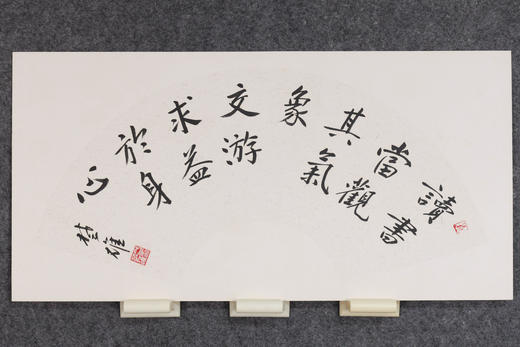 讀書
當觀
其氣
象
交游
求益
於身
心
楚雄